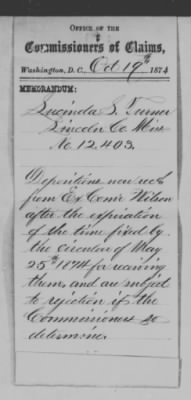 OFFICE OF THE
Commissioners of Claims,
Washington, D. C., Oct 19th 1874
MEMORANDUM:
Lucinda S. Turner
Lincoln Co Miss
No. 12,403.
Depositions now recd
from Ex Comr Wilson
after the expiration
of the time fixed by
the circular of May
25th 1874 for receiving
them, and are subject
to rejection if the
Commissioners so
determine.